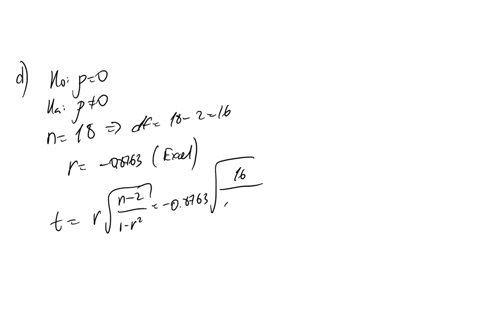 d) H₀: ρ=0
Hₐ: ρ≠0
n= 18 => df = 18-2=16
r= (Excel)
t = r√((n-2)/(1-r²)) = -0.8763 √(16/